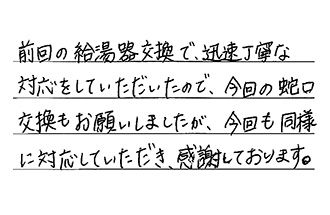 前回の給湯器交換で、迅速丁寧な
対応をしていただいたので、今回の蛇口
交換もお願いしましたが、今回も同様
に対応していただき、感謝しております。